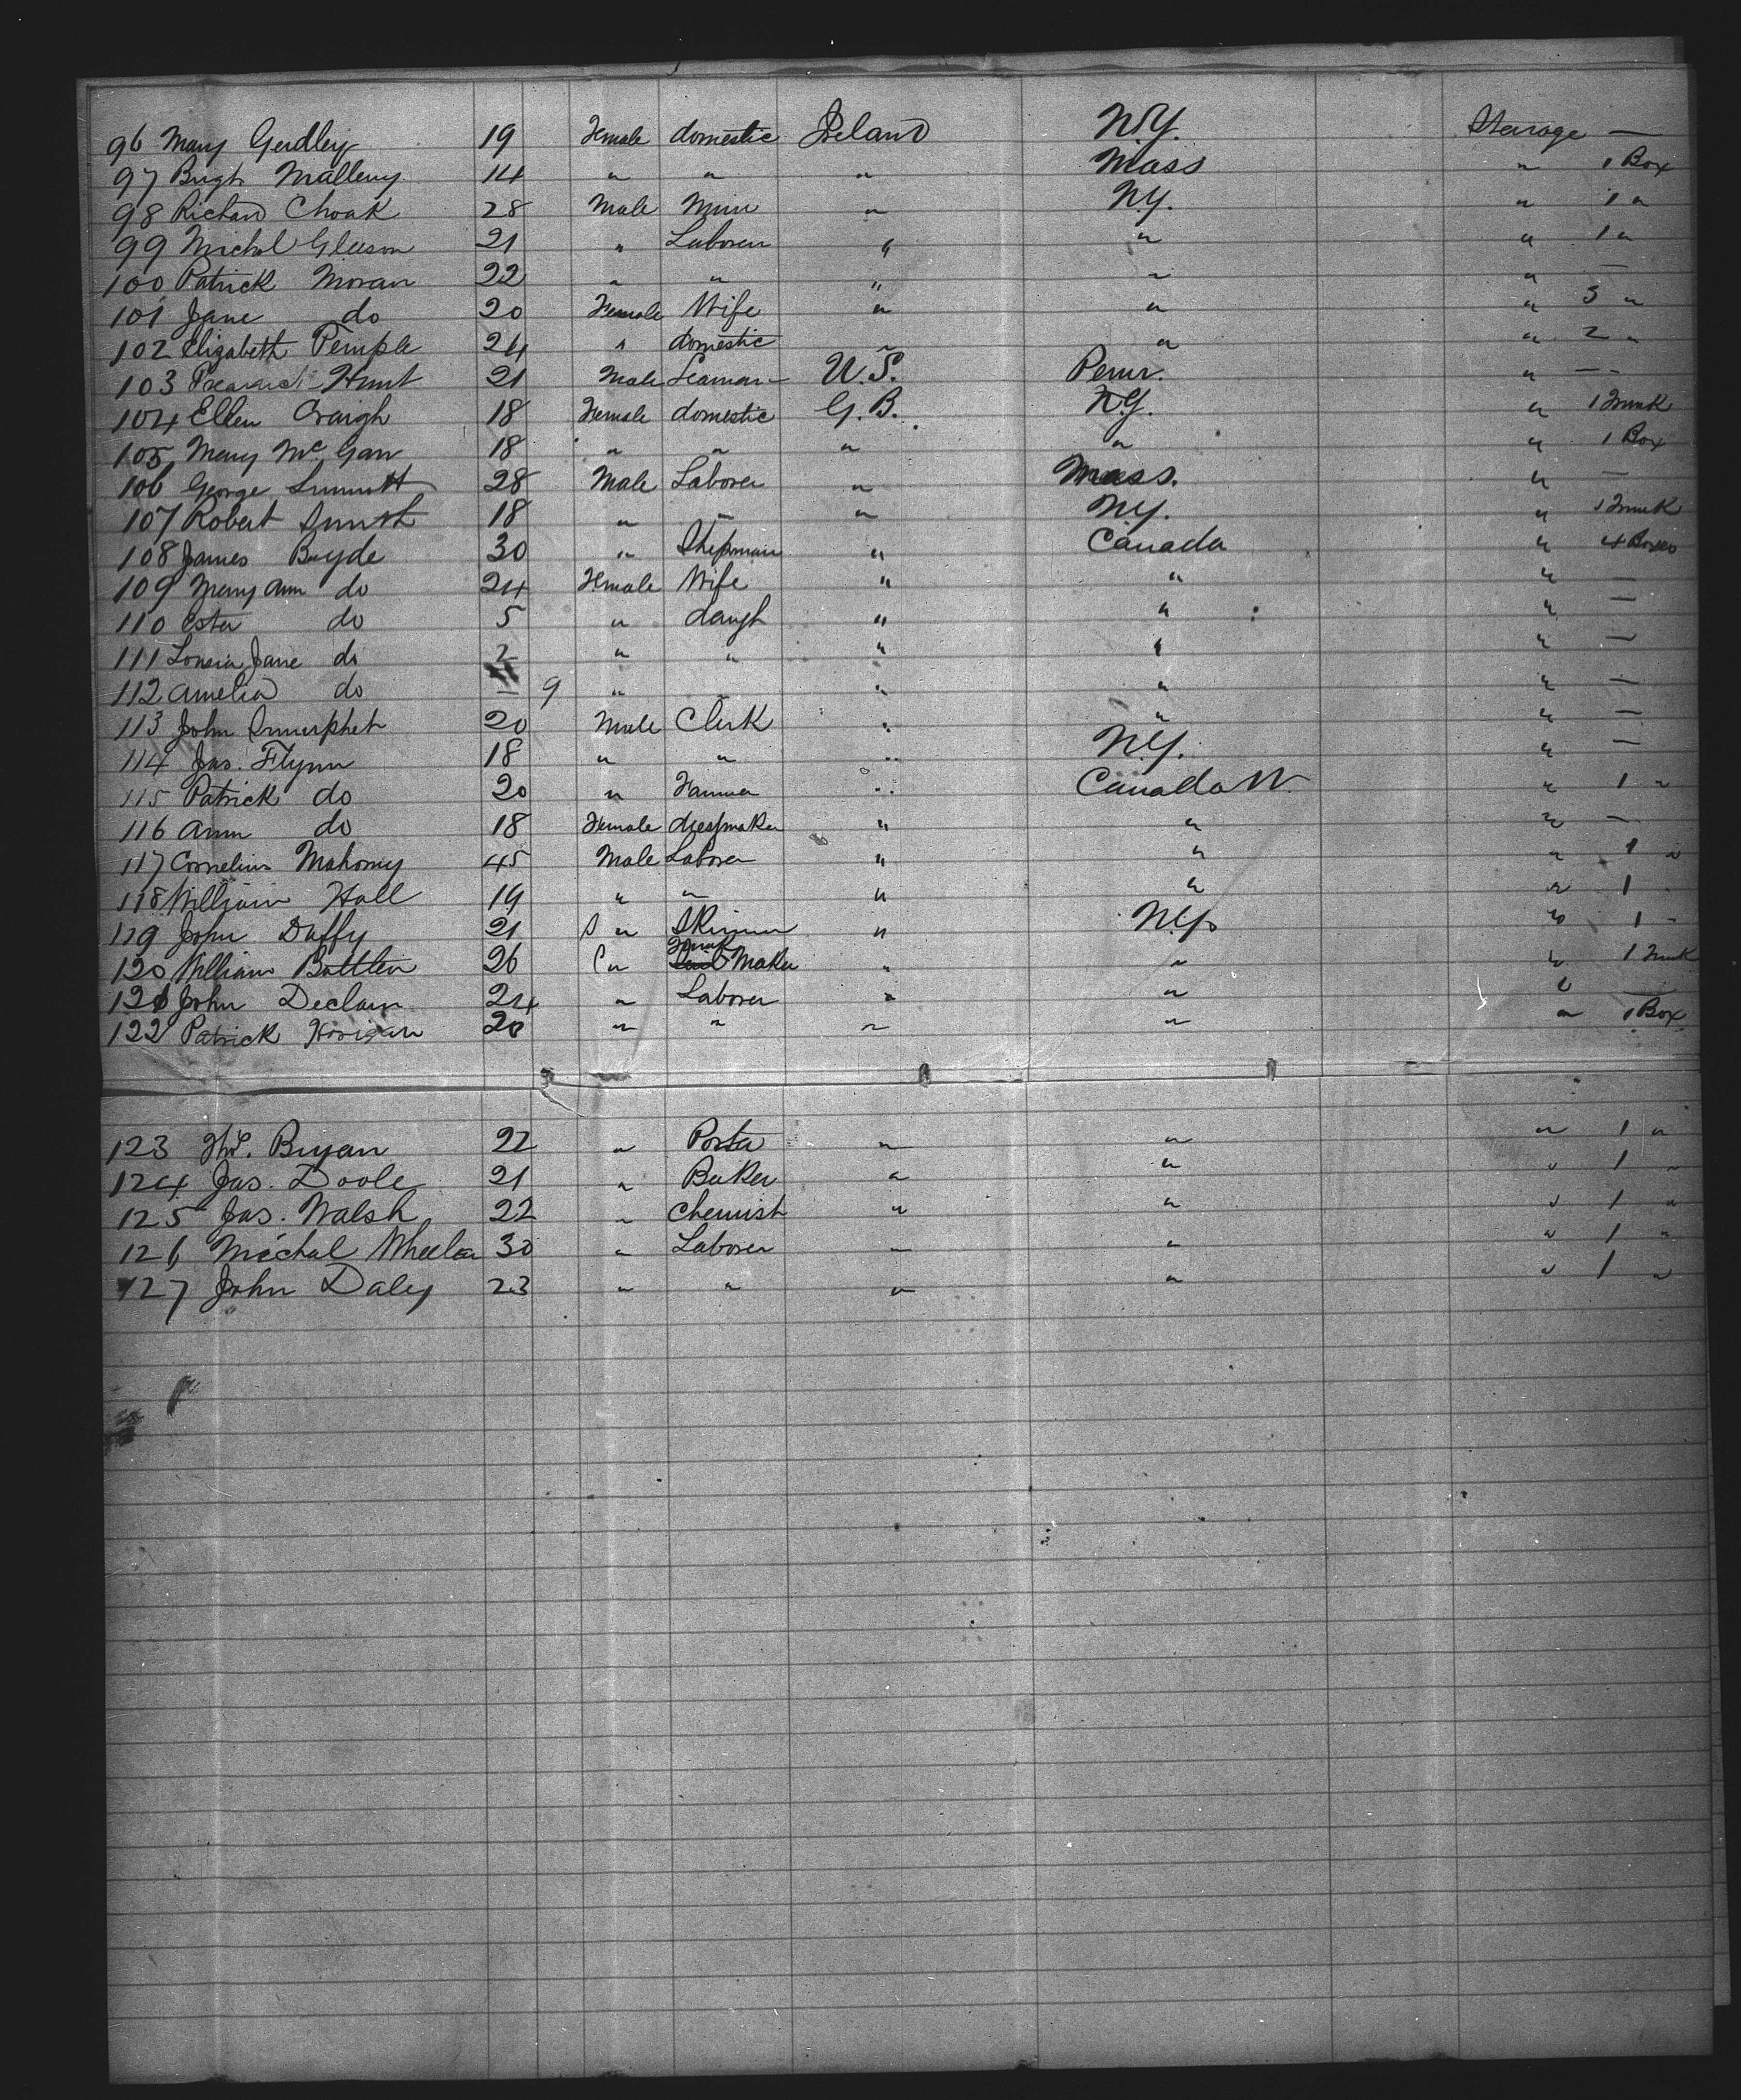 96 Mary Gerdley 19 Female domestic Ireland N.Y. Stearage —
97 Brigh Malleny 14 " " " Mass " 1 Box
98 Richard Choak 28 Male " N.Y. " 1 "
99 Michal Gleeson 21 " Laborer " " " 1 "
100 Patrick Moran 22 " " " " " —
101 Jane do 20 Female Wife " " " 3 "
102 Elizabeth Temple 24 " domestic " " " 2 "
103 Hunt 21 Male Seaman U.S. Penn. " —
104 Ellen Craigh 18 Female domestic G.B. N.Y. " 1 Trunk
105 Mary Mc Gan 18 " " " " " 1 Box
106 George 28 Male Laborer " Mass. " —
107 Robert Smith 18 " " " N.Y. " 1 Trunk
108 James Boyde 30 " Shipman " Canada " 4 Boxes
109 Mary Ann do 24 Female Wife " " " —
110 Ester do 5 " daugh " " " —
111 Jane do 2 " " " " " —
112 Amelia do — 9 " " " " —
113 John 20 Male Clerk " " " —
114 Jas. Flynn 18 " " " N.Y. " —
115 Patrick do 20 " Farmer " Canada W. " 1 "
116 Ann do 18 Female dressmaker " " " —
117 Cornelius Mahony 45 Male Laborer " " " 1 "
118 William Hall 19 " " " " " 1 "
119 John Duffy 21 " Skinner " N.Y. " 1 "
120 William Battler 26 " Trunk Maker " " " 1 Trunk
121 John Declam 24 " Laborer " " " —
122 Patrick Horigan 28 " " " " " 1 Box
123 Bryan 22 " Porter " " " 1 "
124 Jas. Doole 21 " Baker " " " 1 "
125 Jas. Walsh 22 " Chemist " " " 1 "
126 Michal Wheeler 30 " Laborer " " " 1 "
127 John Daley 23 " " " " " 1 "